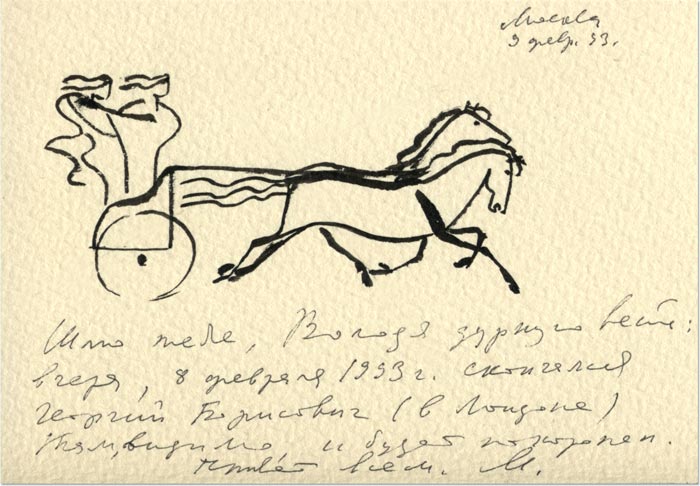 Москва
9 февр. 93.
Шлю тебе, Володя дурную весть:
вчера, 8 февраля 1993 г. скончался
Георгий Борисович (в Лондоне)
Там, видимо и будет похоронен.
Привет всем. М.